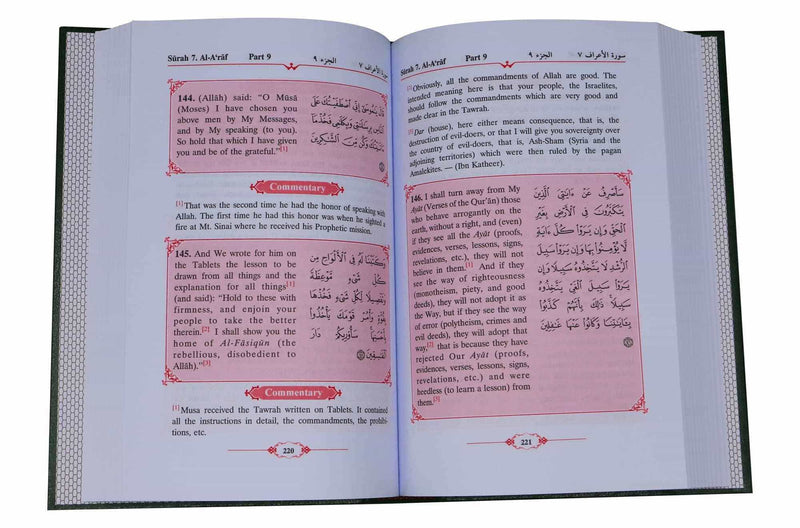 Sūrah 7. Al-A'rāf Part 9 الجزء ٩ سورة الأعراف ٧
144. (Allāh) said: "O Mūsā
(Moses) I have chosen you
above men by My Messages,
and by My speaking (to you).
So hold that which I have given
you and be of the grateful."[1]
قَالَ يَٰمُوسَىٰٓ إِنِّى ٱصْطَفَيْتُكَ عَلَى
ٱلنَّاسِ بِرِسَٰلَٰتِى وَبِكَلَٰمِى فَخُذْ مَآ
ءَاتَيْتُكَ وَكُن مِّنَ ٱلشَّٰكِرِينَ
Commentary
[1]That was the second time he had the honor of speaking with
Allah. The first time he had this honor was when he sighted a
fire at Mt. Sinai where he received his Prophetic mission.
145. And We wrote for him on
the Tablets the lesson to be
drawn from all things and the
explanation for all things[1]
(and said): "Hold to these with
firmness, and enjoin your
people to take the better
therein.[2] I shall show you the
home of Al-Fāsiqūn (the
rebellious, disobedient to
Allāh)."[3]
وَكَتَبْنَا لَهُۥ فِى ٱلْأَلْوَاحِ مِن
كُلِّ شَىْءٍ مَّوْعِظَةً
وَتَفْصِيلًا لِّكُلِّ شَىْءٍ فَخُذْهَا
بِقُوَّةٍ وَأْمُرْ قَوْمَكَ يَأْخُذُوا۟
بِأَحْسَنِهَا سَأُو۟رِيكُمْ دَارَ
ٱلْفَٰسِقِينَ
Commentary
[1] Musa received the Tawrah written on Tablets. It contained
all the instructions in detail, the commandments, the prohibi-
tions, etc.
220
Sūrah 7. Al-A'rāf Part 9 الجزء ٩ سورة الأعراف ٧
[2]Obviously, all the commandments of Allah are good. The
intended meaning here is that your people, the Israelites,
should follow the commandments which are very good and
made clear in the Tawrah.
[3]Dar (house), here either means consequence, that is, the
destruction of evil-doers, or that I will give you sovereignty over
the country of evil-doers, that is, Ash-Sham (Syria and the
adjoining territories) which were then ruled by the pagan
Amalekites. — (Ibn Katheer).
146. I shall turn away from My
Ayāt (Verses of the Qur'ān) those
who behave arrogantly on the
earth, without a right, and (even)
if they see all the Ayāt (proofs,
evidences, verses, lessons, signs,
revelations, etc.), they will not
believe in them.[1] And if they
see the way of righteousness
(monotheism, piety, and good
deeds), they will not adopt it as
the Way, but if they see the way
of error (polytheism, crimes and
evil deeds), they will adopt that
way,[2] that is because they have
rejected Our Ayāt (proofs,
evidences, verses, lessons, signs,
revelations, etc.) and were
heedless (to learn a lesson) from
them.[3]
سَأَصْرِفُ عَنْ ءَايَٰتِىَ ٱلَّذِينَ
يَتَكَبَّرُونَ فِى ٱلْأَرْضِ بِغَيْرِ
ٱلْحَقِّ وَإِن يَرَوْا۟ كُلَّ ءَايَةٍ
لَّا يُؤْمِنُوا۟ بِهَا وَإِن يَرَوْا۟ سَبِيلَ
ٱلرُّشْدِ لَا يَتَّخِذُوهُ سَبِيلًا وَإِن
يَرَوْا۟ سَبِيلَ ٱلْغَىِّ يَتَّخِذُوهُ
سَبِيلًا ذَٰلِكَ بِأَنَّهُمْ كَذَّبُوا۟
بِـَٔايَٰتِنَا وَكَانُوا۟ عَنْهَا غَٰفِلِينَ
221